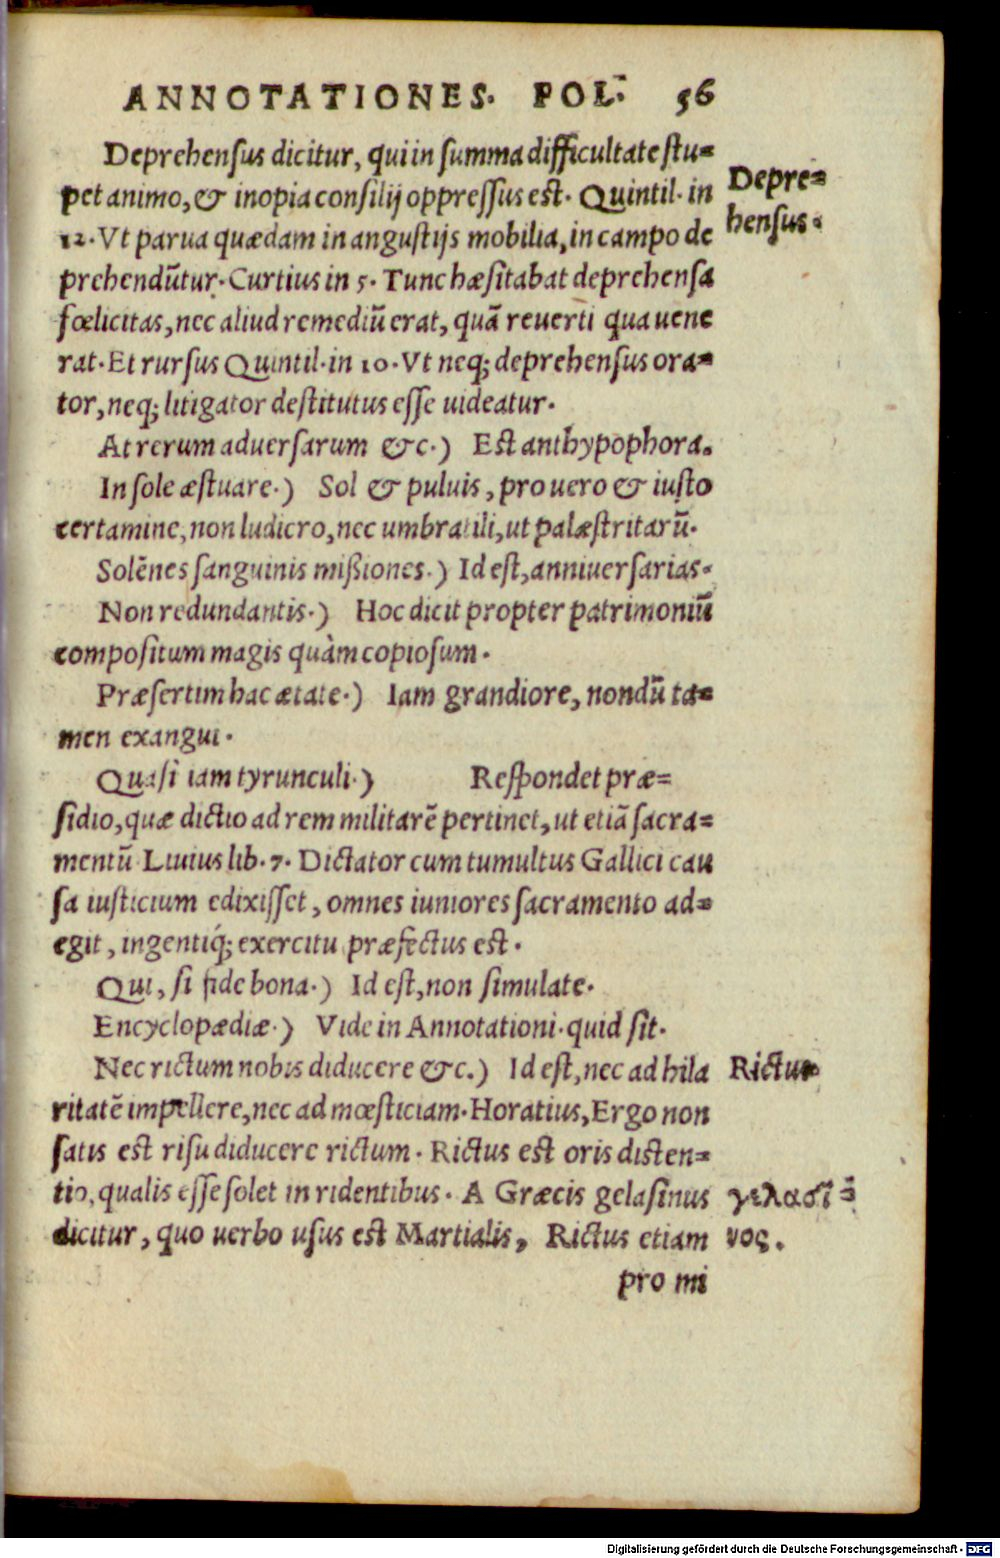 ANNOTATIONES. POL. 56
Deprehensus dicitur, qui in summa difficultate stu=
pet animo, & inopia consilij oppressus est. Quintil. in
12. Vt parua quædam in angustijs mobilia, in campo de
prehendũtur. Curtius in 5. Tunc hæsitabat deprehensa
fœlicitas, nec aliud remediũ erat, quã reuerti qua uene
rat. Et rursus Quintil. in 10. Vt neq; deprehensus ora=
tor, neq; litigator destitutus esse uideatur.
At rerum aduersarum &c.) Est anthypophora.
In sole æstuare.) Sol & puluis, pro uero & iusto
certamine, non ludicro, nec umbratili, ut palæstritarũ.
Solẽnes sanguinis mißiones.) Id est, anniuersarias.
Non redundantis.) Hoc dicit propter patrimoniũ
compositum magis quàm copiosum.
Præsertim hac ætate.) Iam grandiore, nondũ ta=
men exangui.
Quasi iam tyrunculi.) Respondet præ=
sidio, quæ dictio ad rem militarẽ pertinet, ut etiã sacra=
mentũ Liuius lib. 7. Dictator cum tumultus Gallici cau
sa iusticium edixisset, omnes iuniores sacramento ad=
egit, ingentiq́; exercitu præfectus est.
Qui, si fide bona.) Id est, non simulate.
Encyclopædiæ.) Vide in Annotationi. quid sit.
Nec rictum nobis diducere &c.) Id est, nec ad hila
ritatẽ impellere, nec ad mœsticiam. Horatius, Ergo non
satis est risu diducere rictum. Rictus est oris disten=
tio, qualis esse solet in ridentibus. A Græcis gelasinus
dicitur, quo uerbo usus est Martialis, Rictus etiam
pro mi
Depre=
hensus.
Rictus
γελασῖ=
νος.
Digitalisierung gefördert durch die Deutsche Forschungsgemeinschaft - DFG